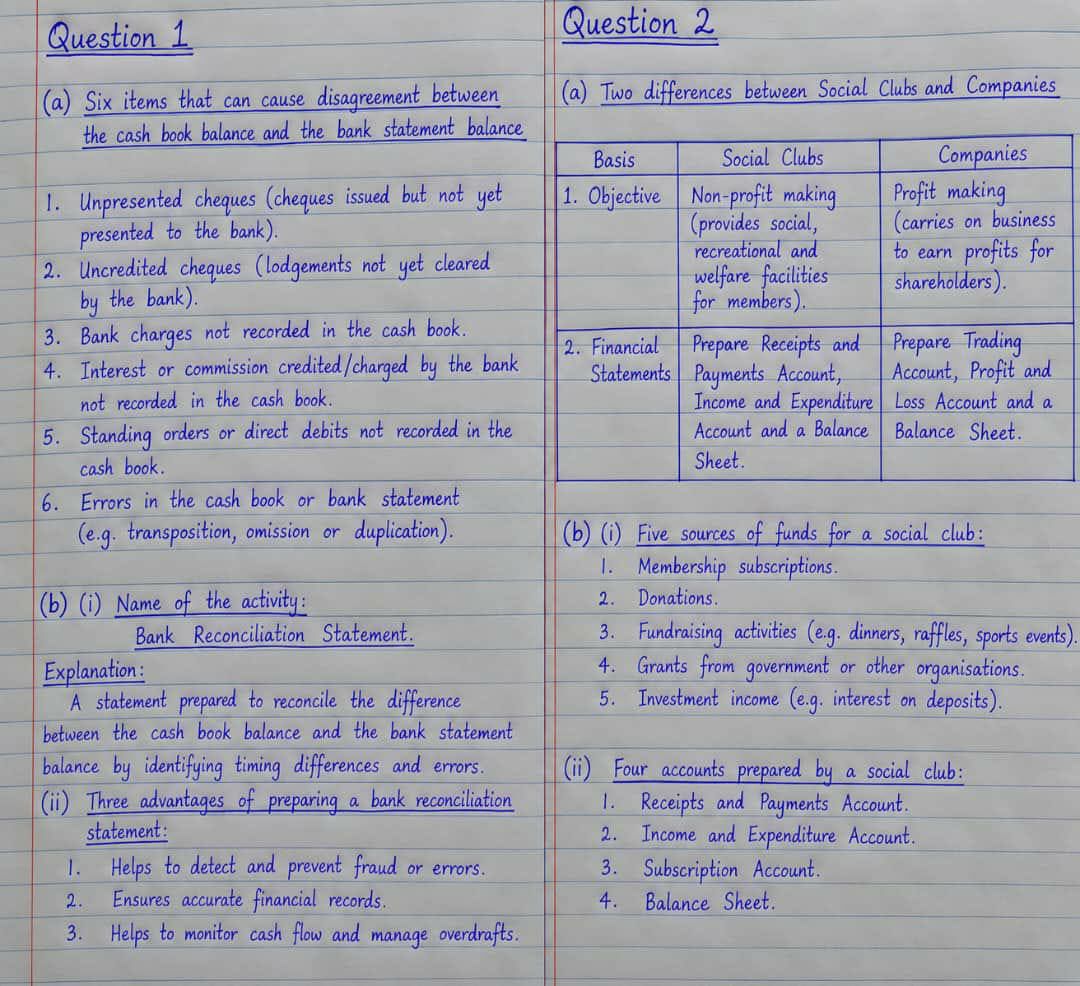 Question 1
(a) Six items that can cause disagreement between
the cash book balance and the bank statement balance
1. Unpresented cheques (cheques issued but not yet
presented to the bank).
2. Uncredited cheques (lodgements not yet cleared
by the bank).
3. Bank charges not recorded in the cash book.
4. Interest or commission credited/charged by the bank
not recorded in the cash book.
5. Standing orders or direct debits not recorded in the
cash book.
6. Errors in the cash book or bank statement
(e.g. transposition, omission or duplication).
(b) (i) Name of the activity:
Bank Reconciliation Statement.
Explanation:
A statement prepared to reconcile the difference
between the cash book balance and the bank statement
balance by identifying timing differences and errors.
(ii) Three advantages of preparing a bank reconciliation
statement:
1. Helps to detect and prevent fraud or errors.
2. Ensures accurate financial records.
3. Helps to monitor cash flow and manage overdrafts.
Question 2
(a) Two differences between Social Clubs and Companies
Basis
Social Clubs
Companies
1. Objective
Non-profit making
(provides social,
recreational and
welfare facilities
for members).
Profit making
(carries on business
to earn profits for
shareholders).
2. Financial
Statements
Prepare Receipts and
Payments Account,
Income and Expenditure
Account and a Balance
Sheet.
Prepare Trading
Account, Profit and
Loss Account and a
Balance Sheet.
(b) (i) Five sources of funds for a social club:
1. Membership subscriptions.
2. Donations.
3. Fundraising activities (e.g. dinners, raffles, sports events).
4. Grants from government or other organisations.
5. Investment income (e.g. interest on deposits).
(ii) Four accounts prepared by a social club:
1. Receipts and Payments Account.
2. Income and Expenditure Account.
3. Subscription Account.
4. Balance Sheet.